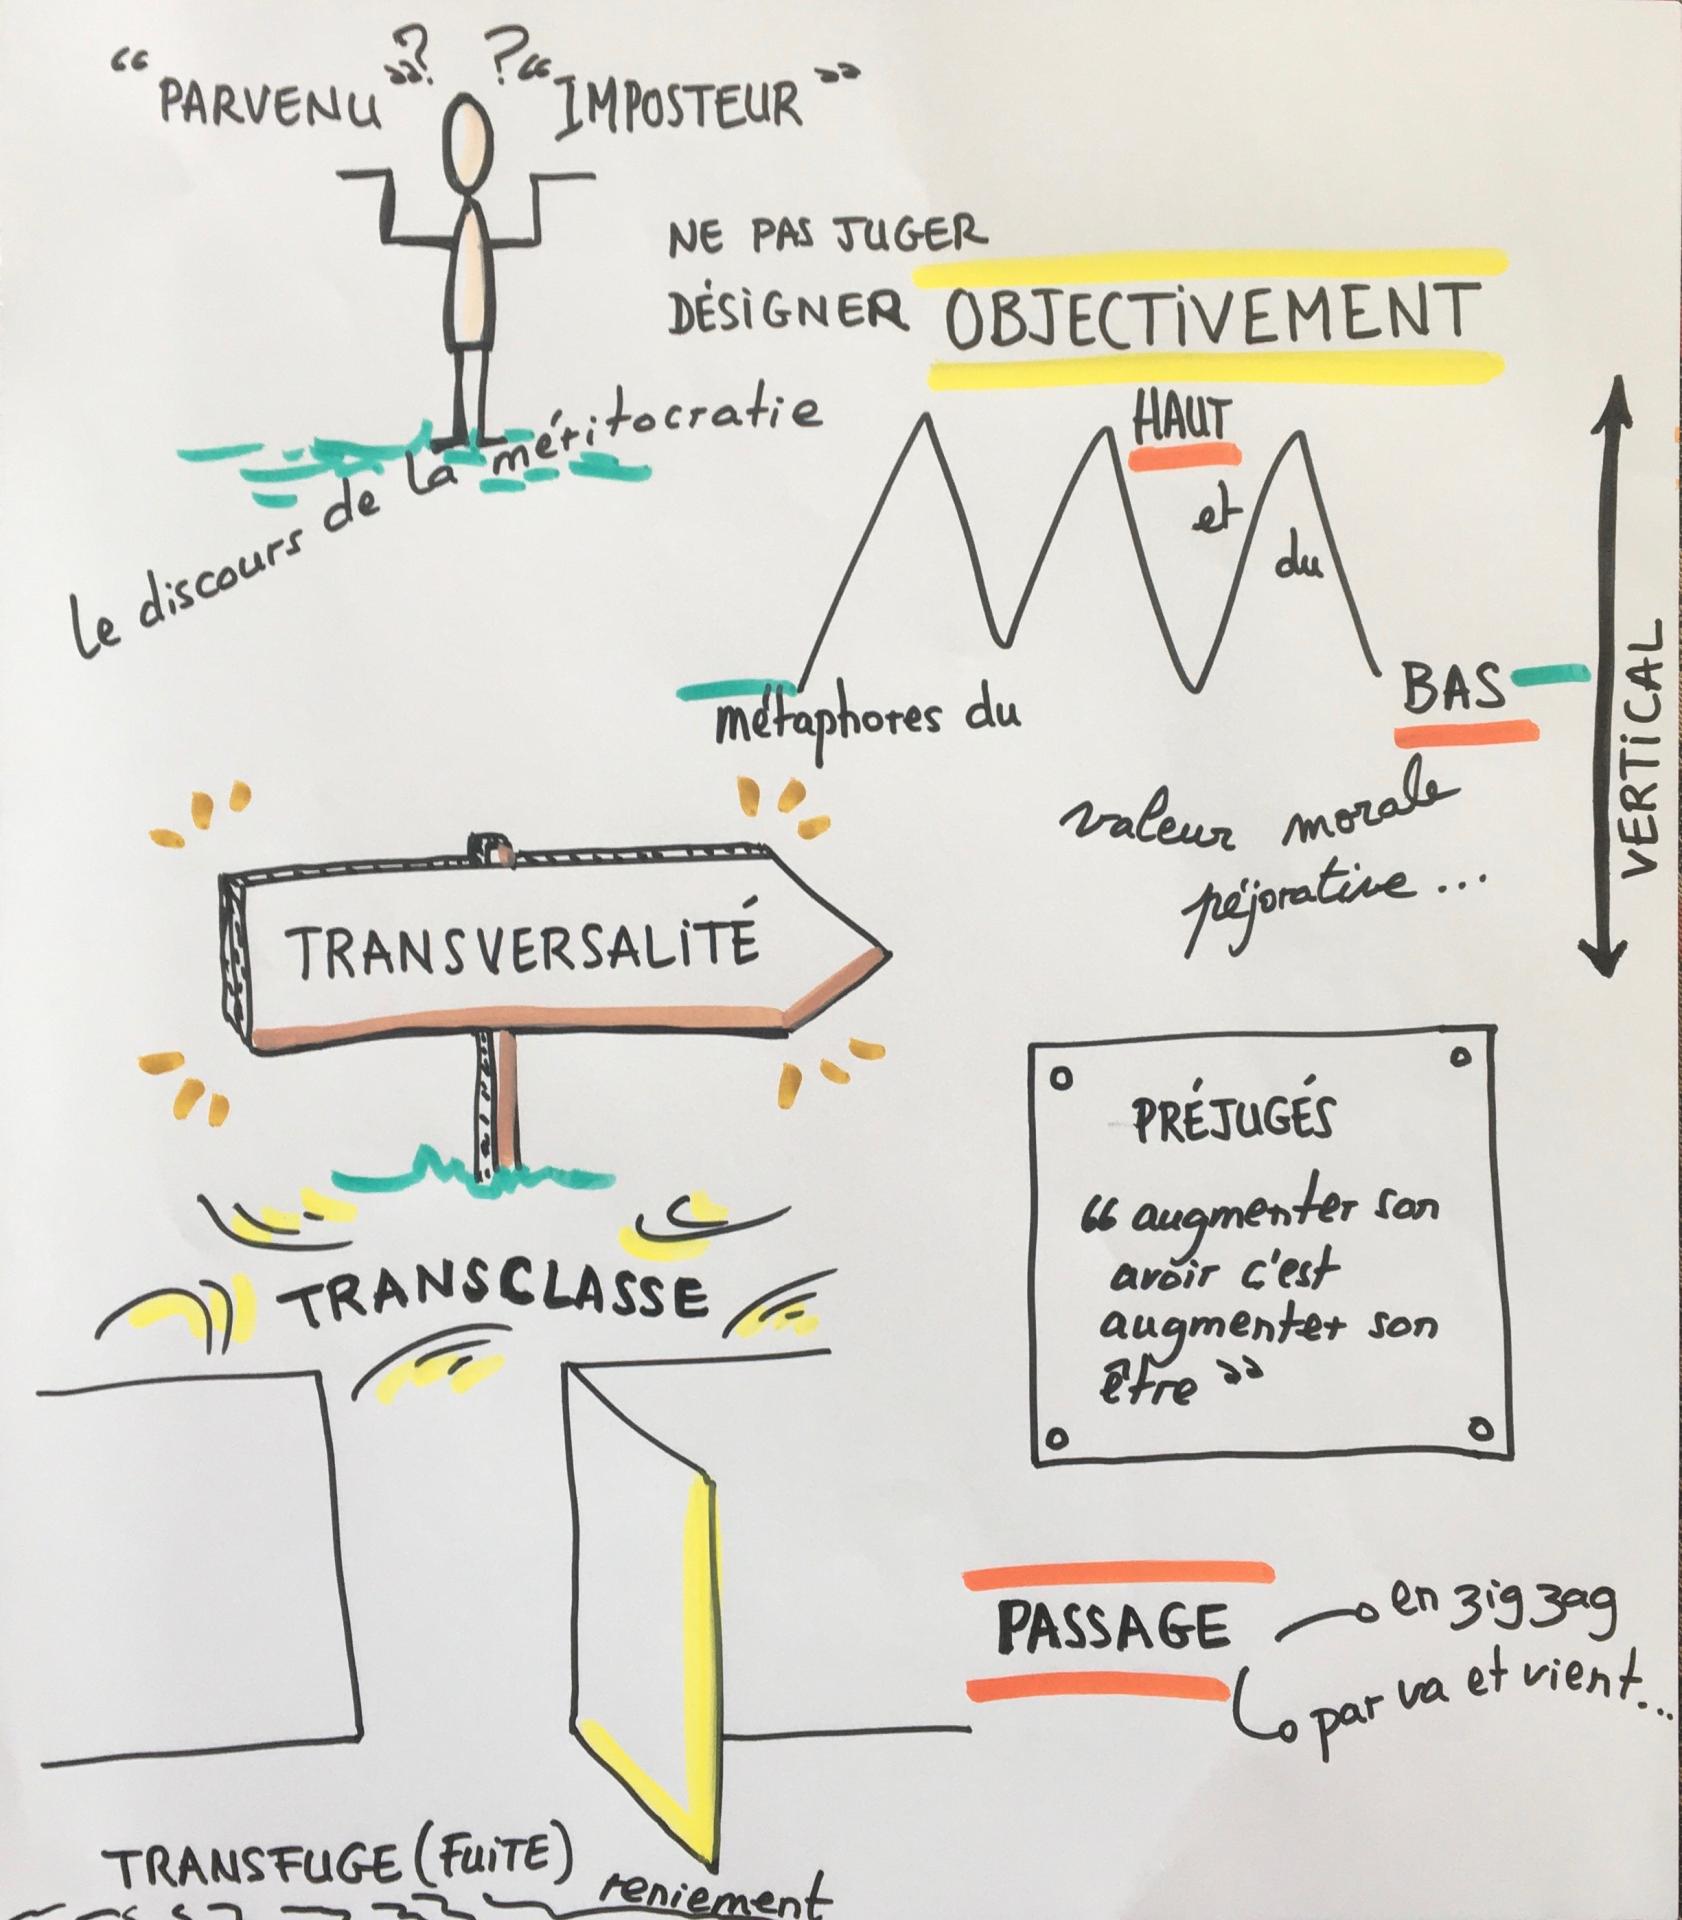 “PARVENU”? ?“IMPOSTEUR”
NE PAS JUGER
DÉSIGNER OBJECTIVEMENT
le discours de la méritocratie
métaphores du HAUT et du BAS
VERTICAL
valeur morale
péjorative...
TRANSVERSALITÉ
TRANSCLASSE
PRÉJUGÉS
“augmenter son
avoir c'est
augmenter son
être”
PASSAGE
en zigzag
par va et vient...
TRANSFUGE (FUITE)
reniement